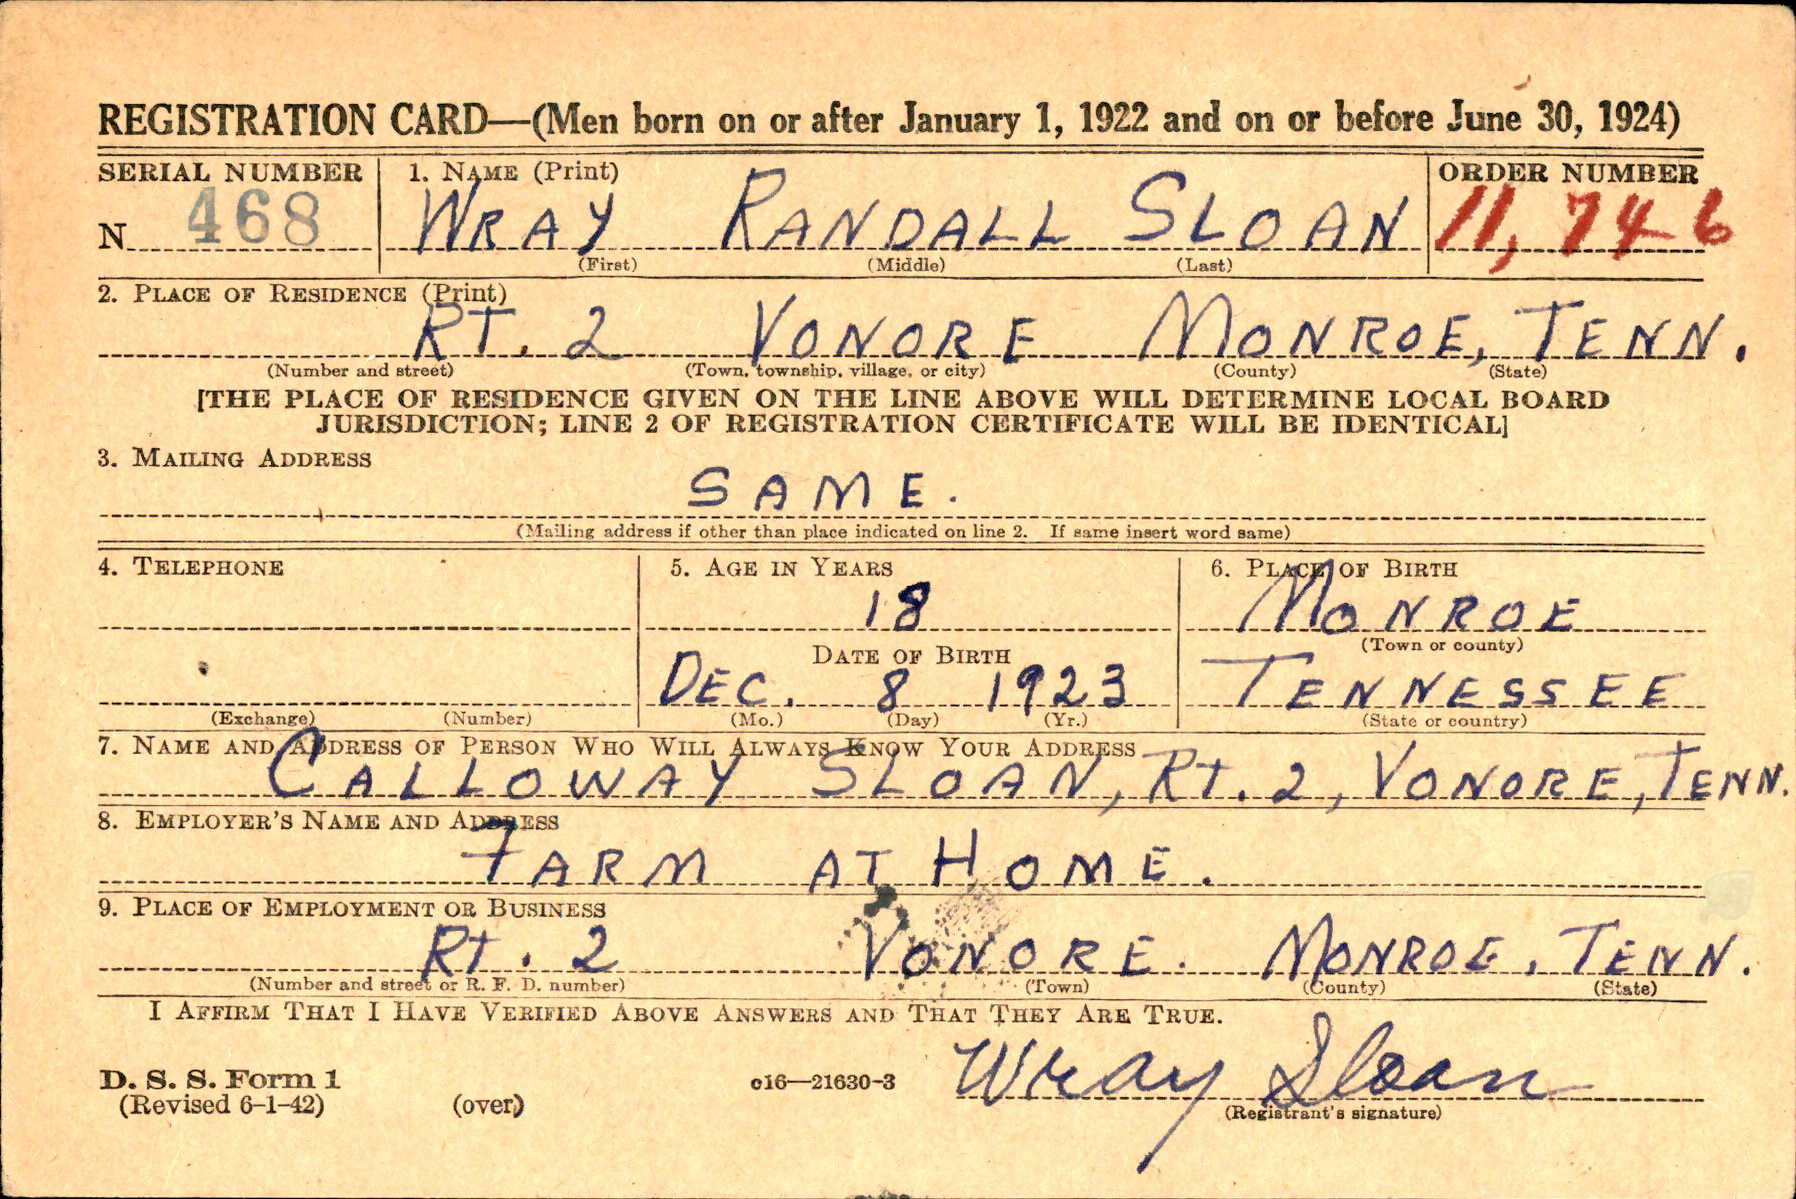 REGISTRATION CARD—(Men born on or after January 1, 1922 and on or before June 30, 1924)
SERIAL NUMBER 1. NAME (Print) ORDER NUMBER
N 468 WRAY RANDALL SLOAN 11,746
(First) (Middle) (Last)
2. PLACE OF RESIDENCE (Print)
RT. 2 VONORE MONROE, TENN.
(Number and street) (Town, township, village, or city) (County) (State)
[THE PLACE OF RESIDENCE GIVEN ON THE LINE ABOVE WILL DETERMINE LOCAL BOARD
JURISDICTION; LINE 2 OF REGISTRATION CERTIFICATE WILL BE IDENTICAL]
3. MAILING ADDRESS
SAME.
(Mailing address if other than place indicated on line 2. If same insert word same)
4. TELEPHONE 5. AGE IN YEARS 6. PLACE OF BIRTH
18 MONROE
(Town or county)
DATE OF BIRTH
DEC. 8 1923 TENNESSEE
(Exchange) (Number) (Mo.) (Day) (Yr.) (State or country)
7. NAME AND ADDRESS OF PERSON WHO WILL ALWAYS KNOW YOUR ADDRESS
CALLOWAY SLOAN, Rt. 2, VONORE, TENN.
8. EMPLOYER'S NAME AND ADDRESS
FARM AT HOME.
9. PLACE OF EMPLOYMENT OR BUSINESS
Rt. 2 VONORE. MONROE, TENN.
(Number and street or R. F. D. number) (Town) (County) (State)
I AFFIRM THAT I HAVE VERIFIED ABOVE ANSWERS AND THAT THEY ARE TRUE.
D. S. S. Form 1 c16—21630-3 Wray Sloan
(Revised 6-1-42) (over) (Registrant's signature)